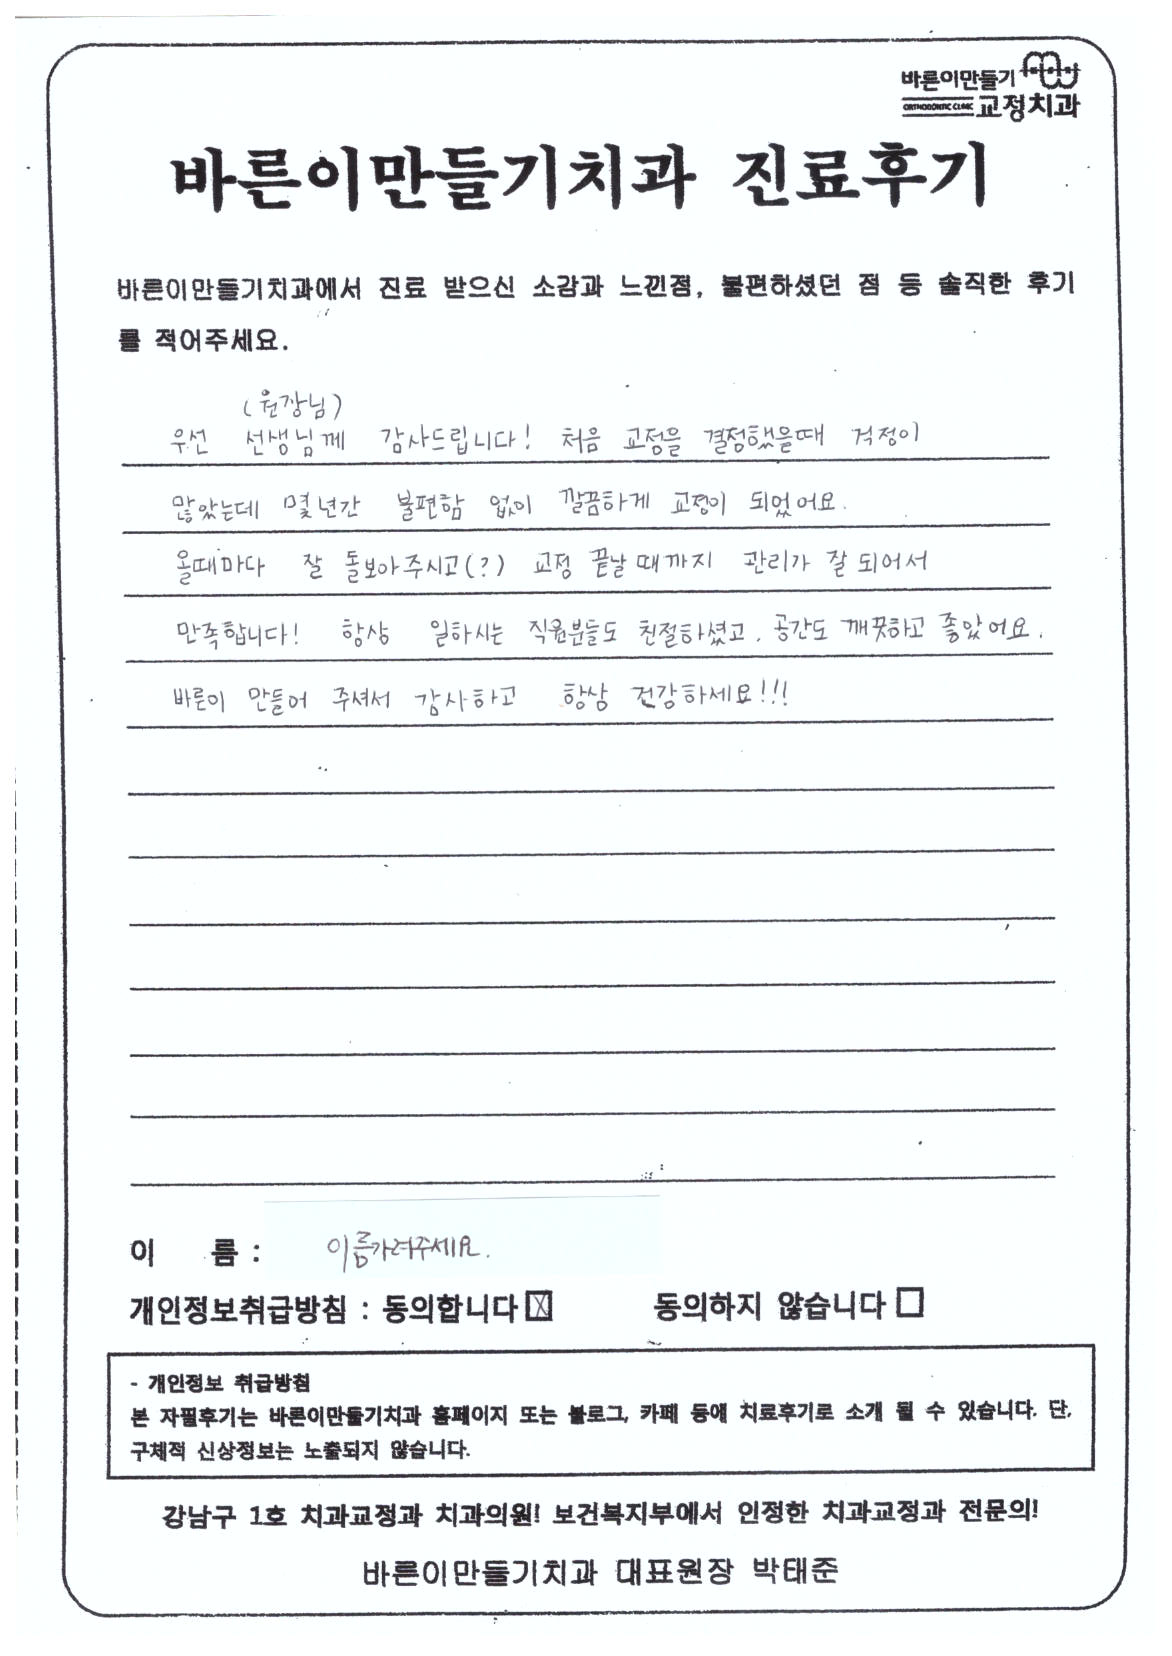 바른이만들기
ORTHODONTIC CLINIC 교정치과
바른이만들기치과 진료후기
바른이만들기치과에서 진료 받으신 소감과 느낀점, 불편하셨던 점 등 솔직한 후기
를 적어주세요.
(원장님)
우선 선생님께 감사드립니다! 처음 교정을 결정했을때 걱정이
많았는데 몇년간 불편함 없이 깔끔하게 교정이 되었어요.
올때마다 잘 돌보아주시고(?) 교정 끝날때까지 관리가 잘 되어서
만족합니다! 항상 일하시는 직원분들도 친절하셨고, 공간도 깨끗하고 좋았어요.
바른이 만들어 주셔서 감사하고 항상 건강하세요!!!
이 름 : 이름가려주세요.
개인정보취급방침 : 동의합니다 ☒ 동의하지 않습니다 ☐
- 개인정보 취급방침
본 자필후기는 바른이만들기치과 홈페이지 또는 블로그, 카페 등에 치료후기로 소개 될 수 있습니다. 단,
구체적 신상정보는 노출되지 않습니다.
강남구 1호 치과교정과 치과의원! 보건복지부에서 인정한 치과교정과 전문의!
바른이만들기치과 대표원장 박태준